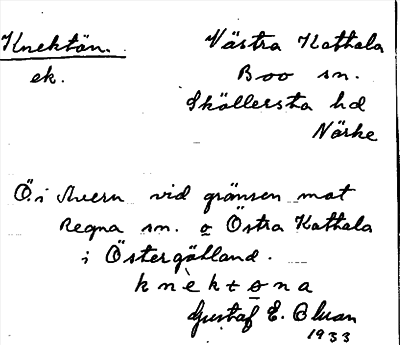 Knektön.
Västra Kathala
ek.
Boo sn.
Sköllersta hd
Närke
Ö. i Avern vid gränsen mot
Regna sn. o Östra Kathala
i Östergötland.
knèktøna
Gustaf E. Oluan
1933